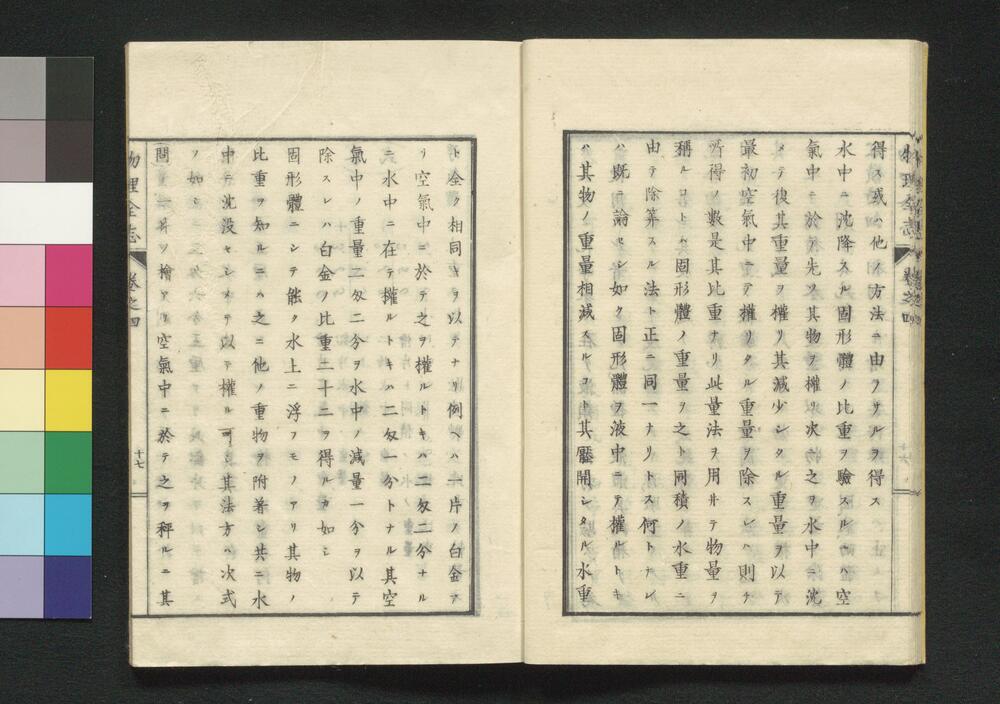 得ス或ハ他ノ方法ニ由ラサルヲ得ス
水中ニ沈降スル固形體ノ比重ヲ驗スルニハ空
氣中ニ於テ先ツ其物ヲ權リ次物之ヲ水中ニ沈
メテ復其重量ヲ權リ其減少シタル重量ヲ以テ
最初空氣中ニテ權リタル重量ヲ除スレハ則チ
所得ノ數是其比重ナリ此量法ヲ用井テ物量ヲ
稱ルコトハ固形體ノ重量ヲ之ト同積ノ水重ニ
由テ除算スル法ト正ニ同一ナリトス何トナレ
ハ既ニ論セシ如ク固形體ヲ液中ニテ權ルトキ
ハ其物ノ重量相減スルコト其壓開シタル水重
ト全ク相同キヲ以テナリ例ヘハ一片ノ白金ア
リ空氣中ニ於テ之ヲ權ルトキハ二匁二分ナル
ニ水中ニ在テ權ルトキハ二匁一分トナル其空
氣中ノ重量二匁二分ヲ水中ノ減量一分ヲ以テ
除スレハ白金ノ比重二十二ヲ得ルカ如シ
固形體ニシテ能ク水上ニ浮フモノアリ其物ノ
比重ヲ知ルニハ之ニ他ノ重物ヲ附著シ共ニ水
中ニ沈没セシメテ以テ權ル可シ其法方ハ次式
ノ如シ
問 一片ノ檜アリ空氣中ニ於テ之ヲ秤ルニ其
物理全志 卷之四
十七